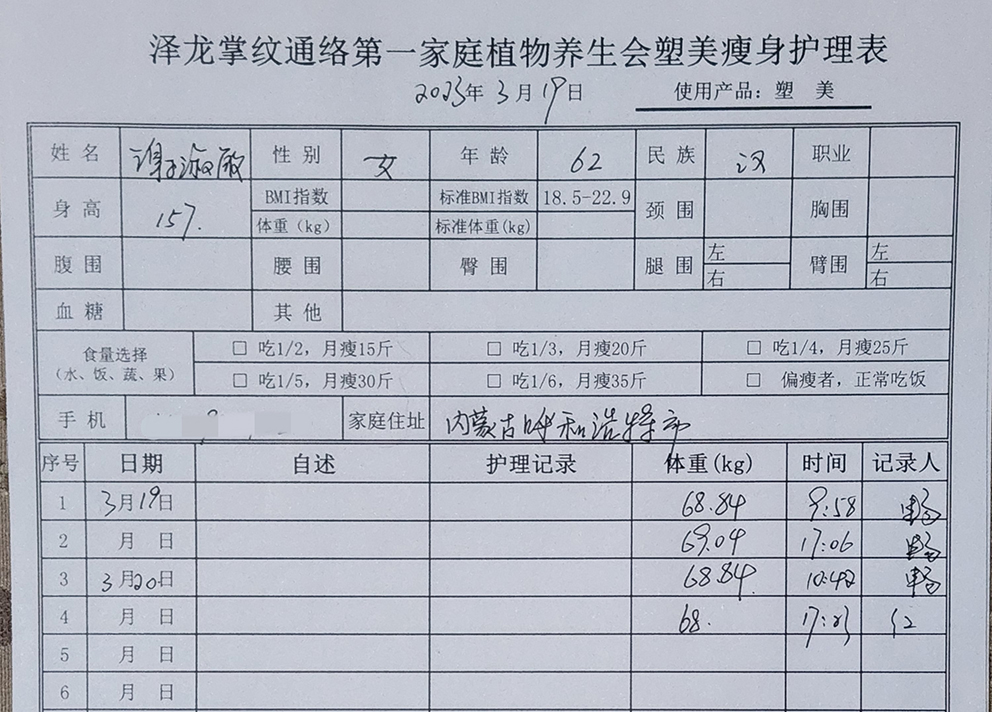 泽龙掌纹通络第一家庭植物养生会塑美瘦身护理表
2023年3月19日 使用产品：塑 美
姓 名 谢淑敏 性 别 女 年 龄 62 民 族 汉 职业
身 高 157. BMI指数 标准BMI指数 18.5-22.9 颈 围 胸围
体重（kg） 标准体重(kg)
腹 围 腰 围 臀 围 腿 围 左 右 臂围 左 右
血 糖 其 他
食量选择（水、饭、蔬、果） □ 吃1/2，月瘦15斤 □ 吃1/3，月瘦20斤 □ 吃1/4，月瘦25斤
□ 吃1/5，月瘦30斤 □ 吃1/6，月瘦35斤 □ 偏瘦者，正常吃饭
手 机 家庭住址 内蒙古呼和浩特市
序号 日期 自述 护理记录 体重(kg) 时间 记录人
1 3月19日 68.84 9:58 畅
2 月 日 69.04 17:06 畅
3 3月20日 68.84 10:42 畅
4 月 日 68. 17:23 红
5 月 日
6 月 日